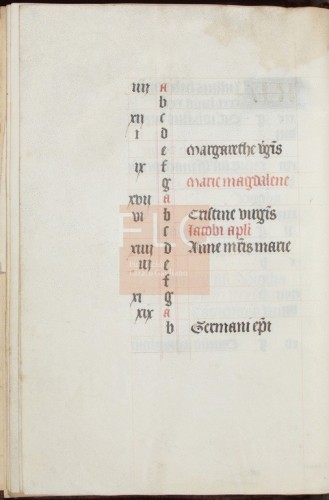 iiij a
b
xij c
i d
e Margarethe v̄gīs
ix f
g Marie magdalene
xvij a
vi b Cristine virgīs
c Jacobi apli
xiiij d Anne mr̄is marie
iij e
f
xi g
xix a
b Germani ep̄i